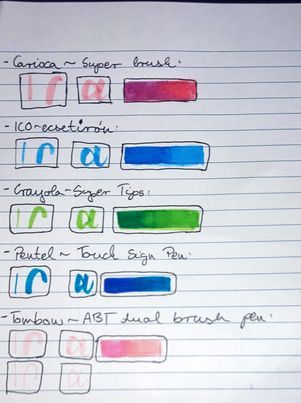 - Carioca ~ Super brush:
a
- ICO-ecsetirón:
a
- Crayola ~ Super Tips:
a
- Pentel ~ Touch Sign Pen:
a
- Tombow ~ ABT dual brush pen:
a
a